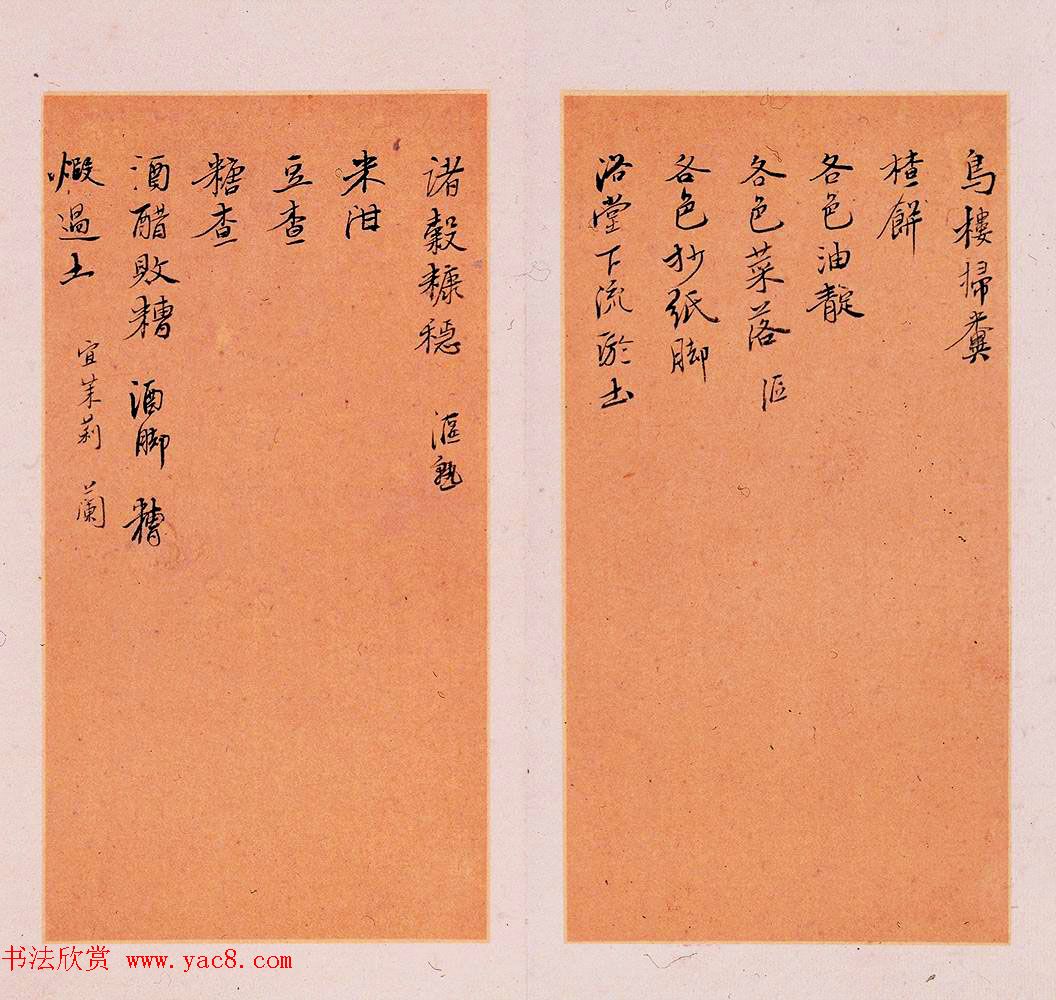 鳥樓掃糞
楂餅
各色油靛
各色菜落 漚
各色抄紙脚
浴堂下流淤土
諸穀糠穏 漚熟
米泔
豆查
糖查
酒醋敗糟 酒脚 糟
煅過土 宜茉莉 蘭
书法欣赏 www.yac8.com